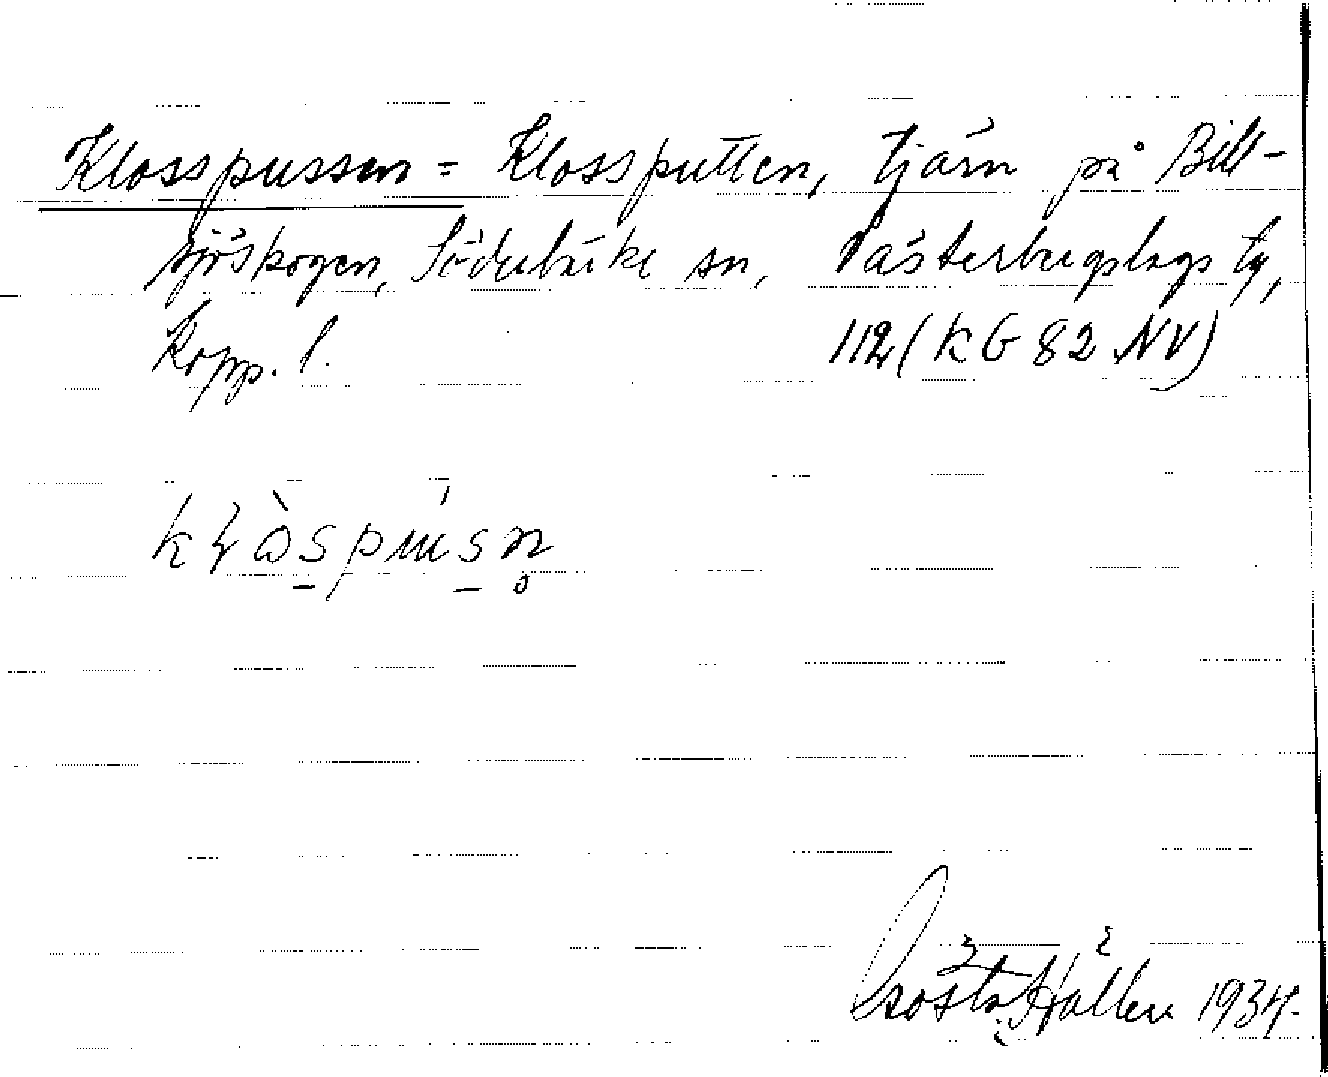 Klosspussen = Klossputten, tjärn på Bill-
sjöskogen, Söderbärke sn, Västerbergslags tg,
Kopp. l. 112 (KG 82 NV)
Gösta Hallén 1934.